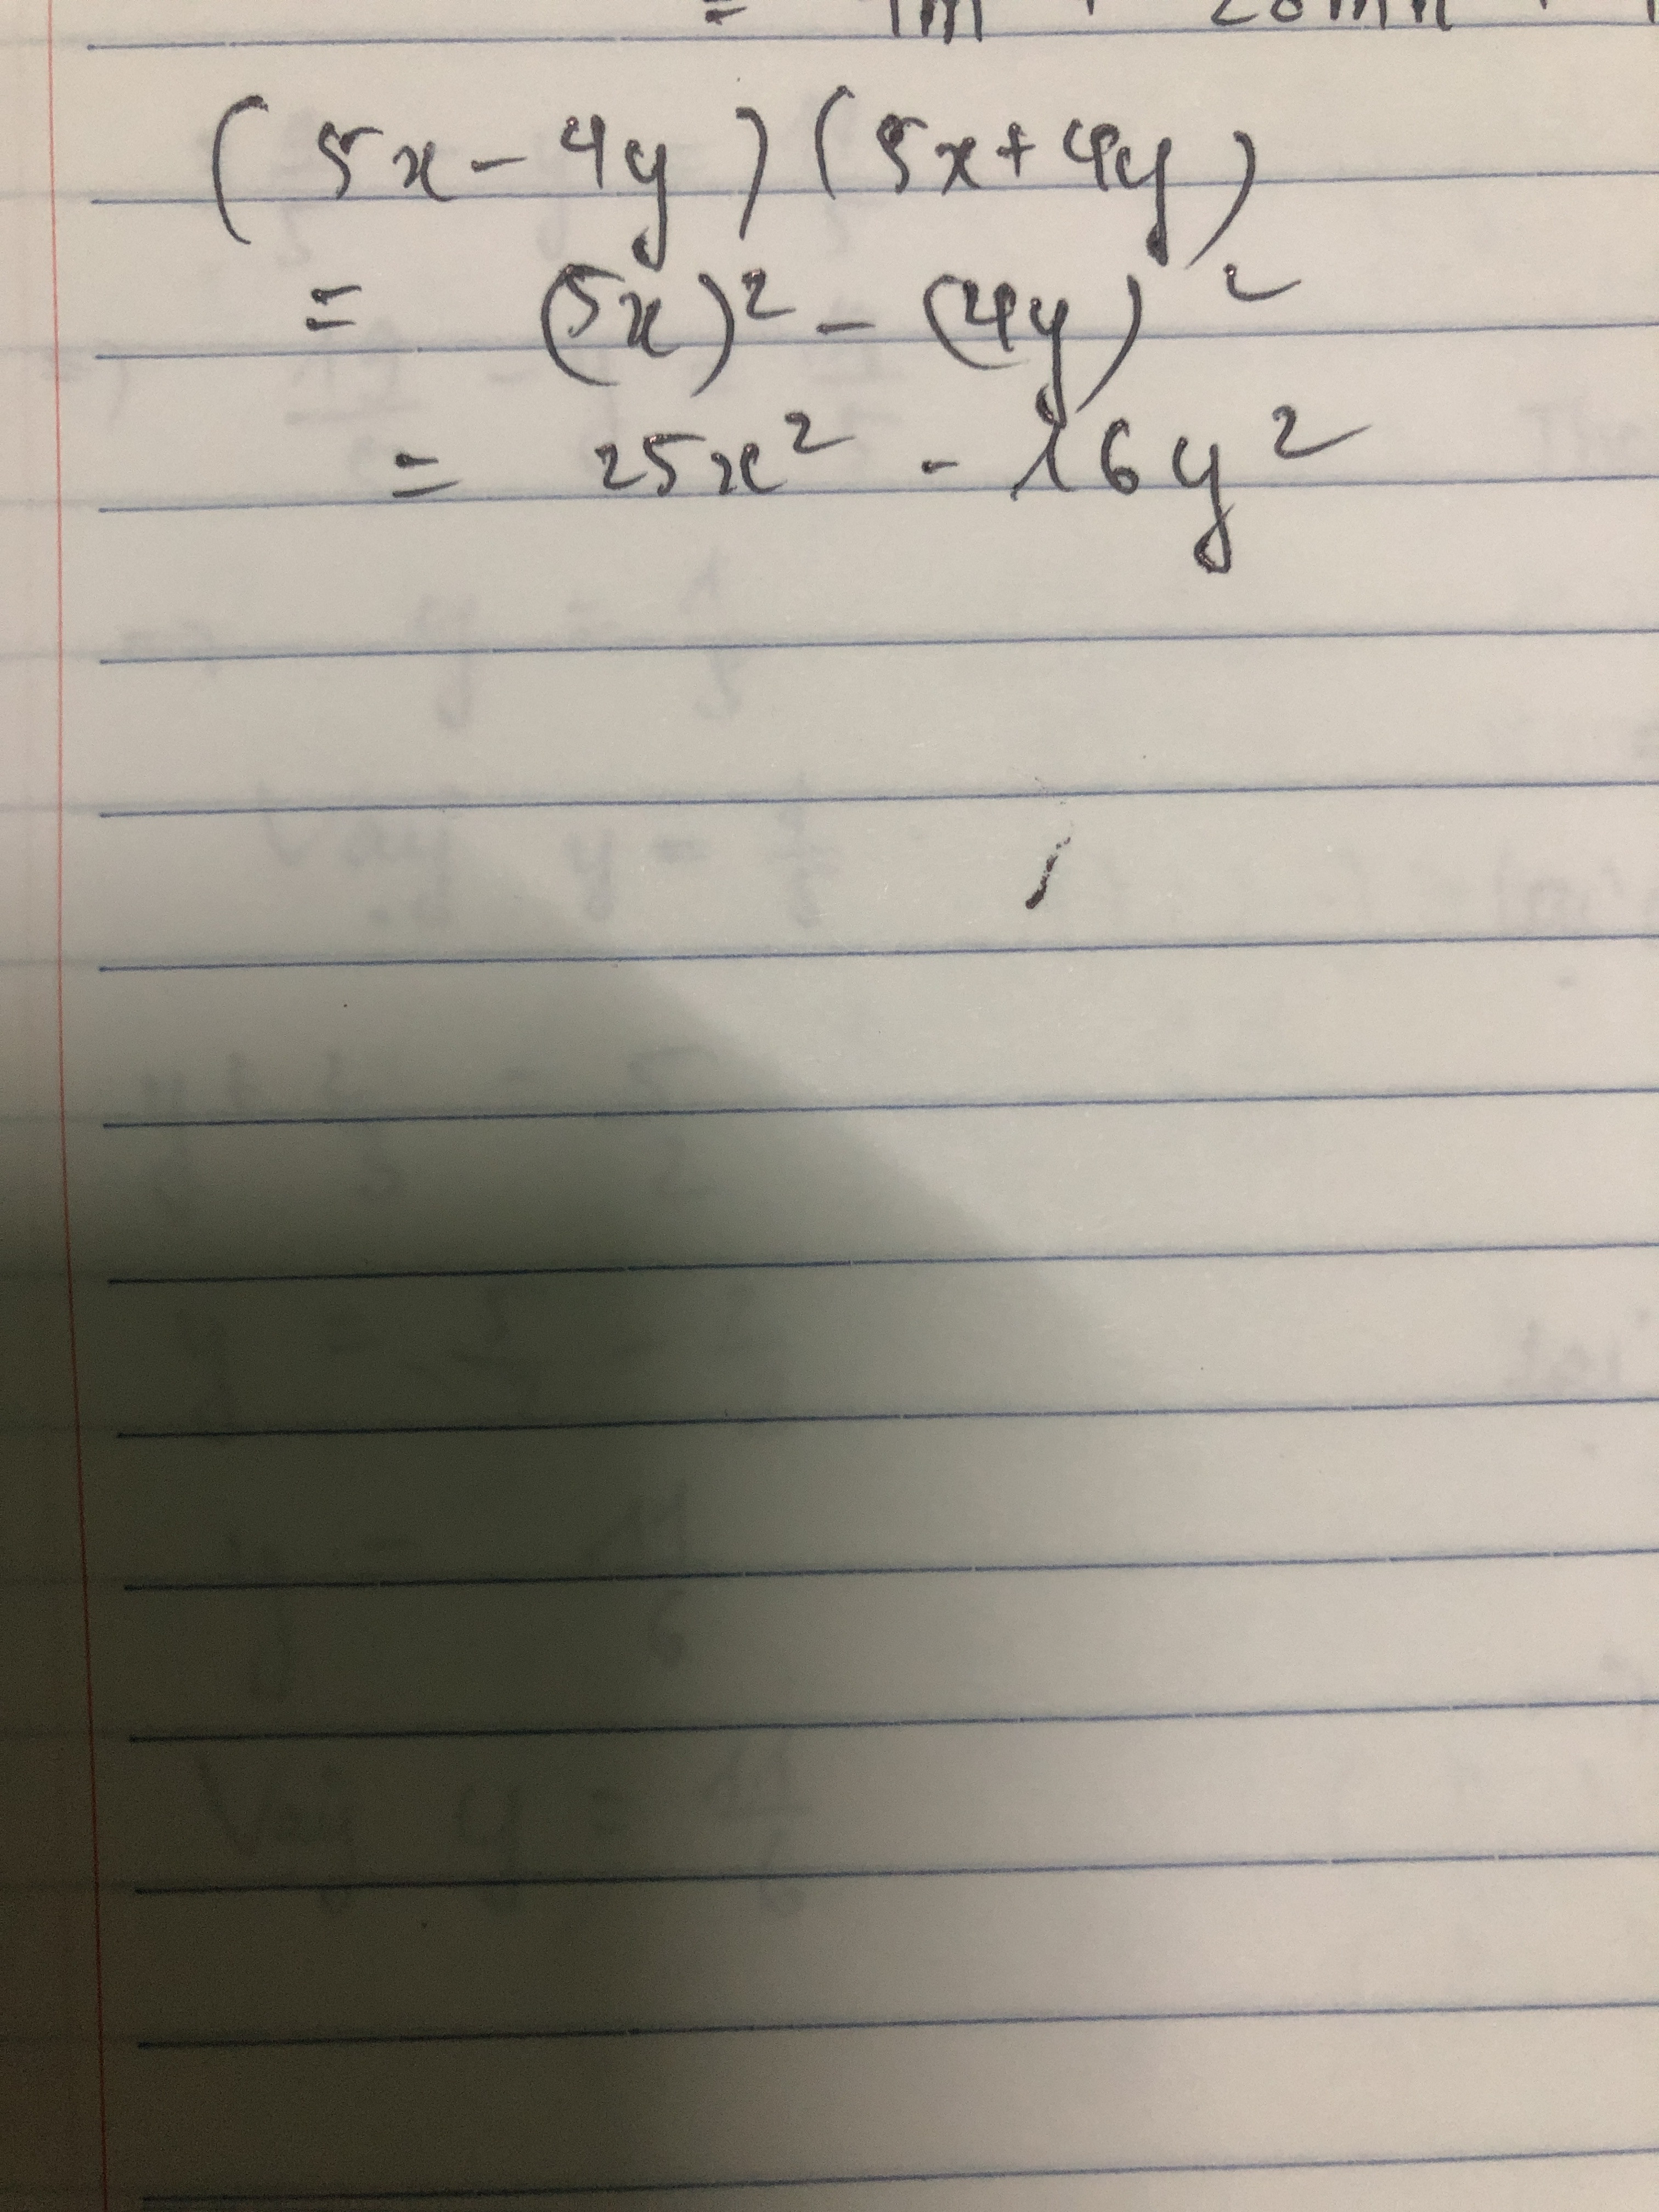 ( 5x - 4y ) ( 5x + 4y )
= (5x)² - (4y)²
= 25x² - 16y²